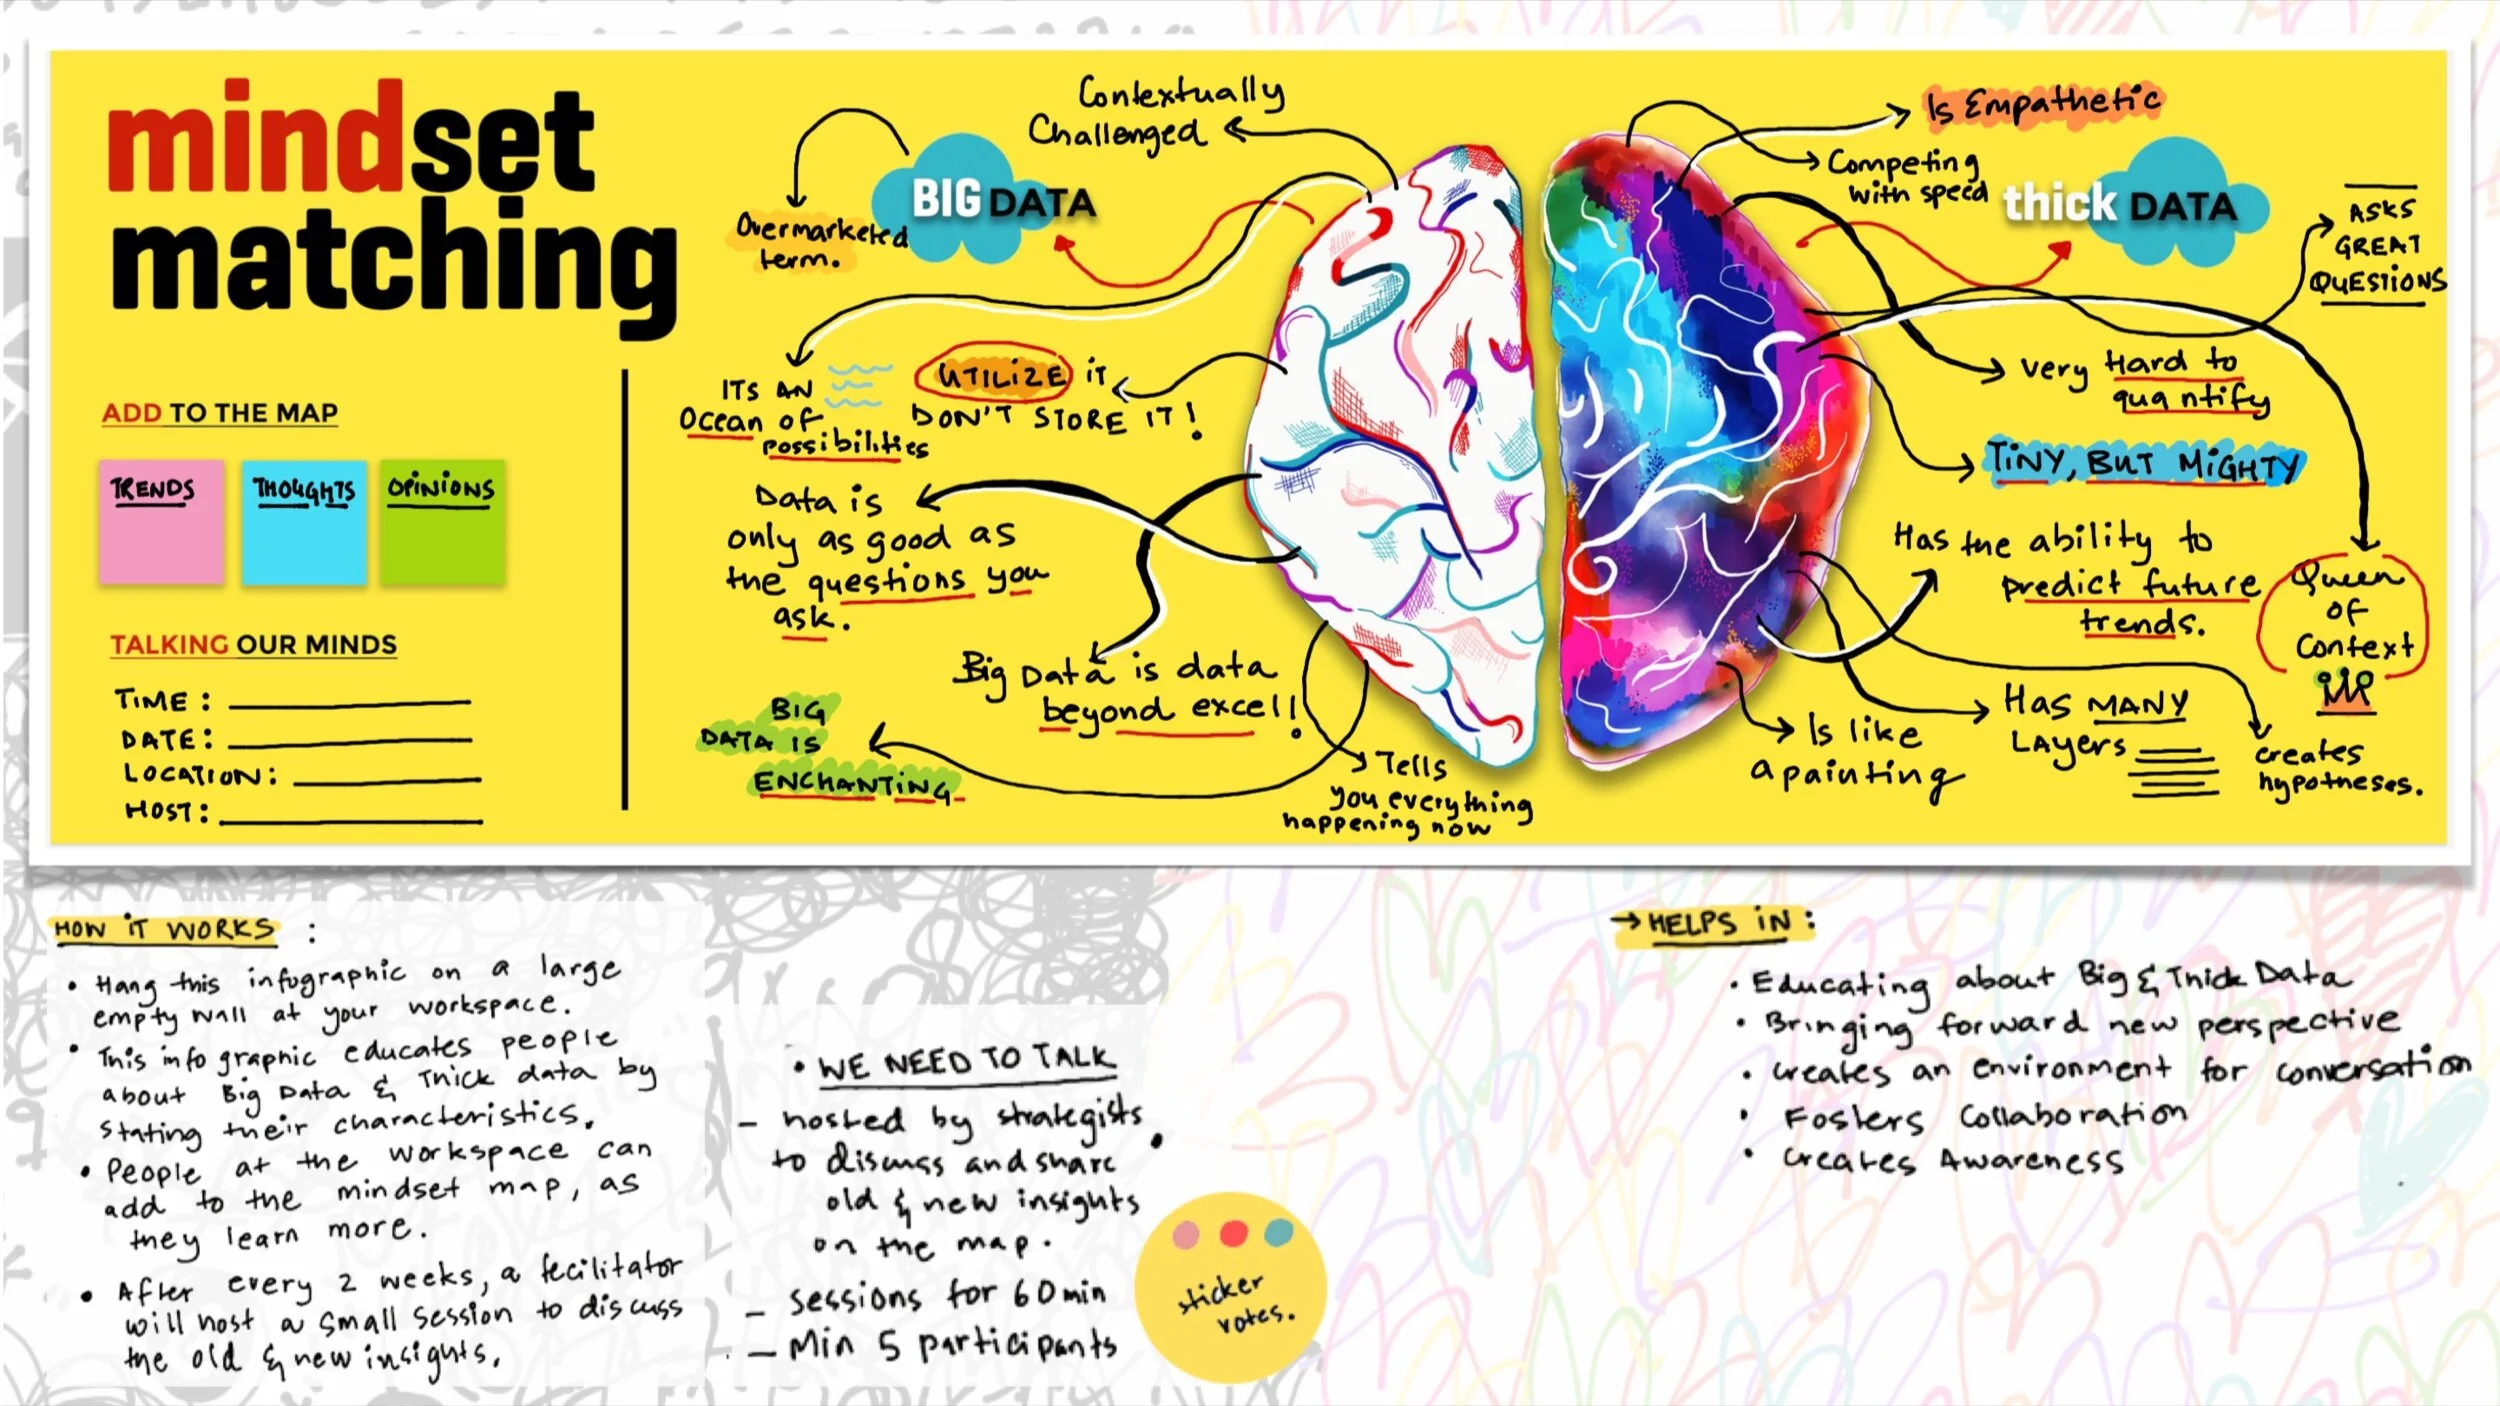 mindset
matching
ADD TO THE MAP
TRENDS
THOUGHTS
OPINIONS
TALKING OUR MINDS
TIME :
DATE :
LOCATION :
HOST :
Contextually
Challenged
BIG DATA
Overmarketed
term.
ITS AN
Ocean of
possibilities
UTILIZE it
DON'T STORE IT !
Data is
only as good as
the questions you
ask.
Big Data is data
beyond excel!
BIG
DATA IS
ENCHANTING
Tells
you everything
happening now
Is Empathetic
Competing
with speed
thick DATA
ASKS
GREAT
QUESTIONS
very Hard to
quantify
TINY, BUT MIGHTY
Has the ability to
predict future
trends.
Queen
of
Context
Has MANY
Layers
Is like
a painting
creates
hypotheses.
HOW IT WORKS :
• Hang this infographic on a large
empty wall at your workspace.
• This info graphic educates people
about Big Data & Thick data by
stating their characteristics.
• People at the workspace can
add to the mindset map, as
they learn more.
• After every 2 weeks, a fecilitator
will host a small session to discuss
the old & new insights.
• WE NEED TO TALK
- hosted by strategists
to discuss and share
old & new insights
on the map.
- sessions for 60 min
- Min 5 participants
sticker
votes.
→ HELPS IN :
• Educating about Big & Thick Data
• Bringing forward new perspective
• Creates an environment for conversation
• Fosters Collaboration
• Creates Awareness